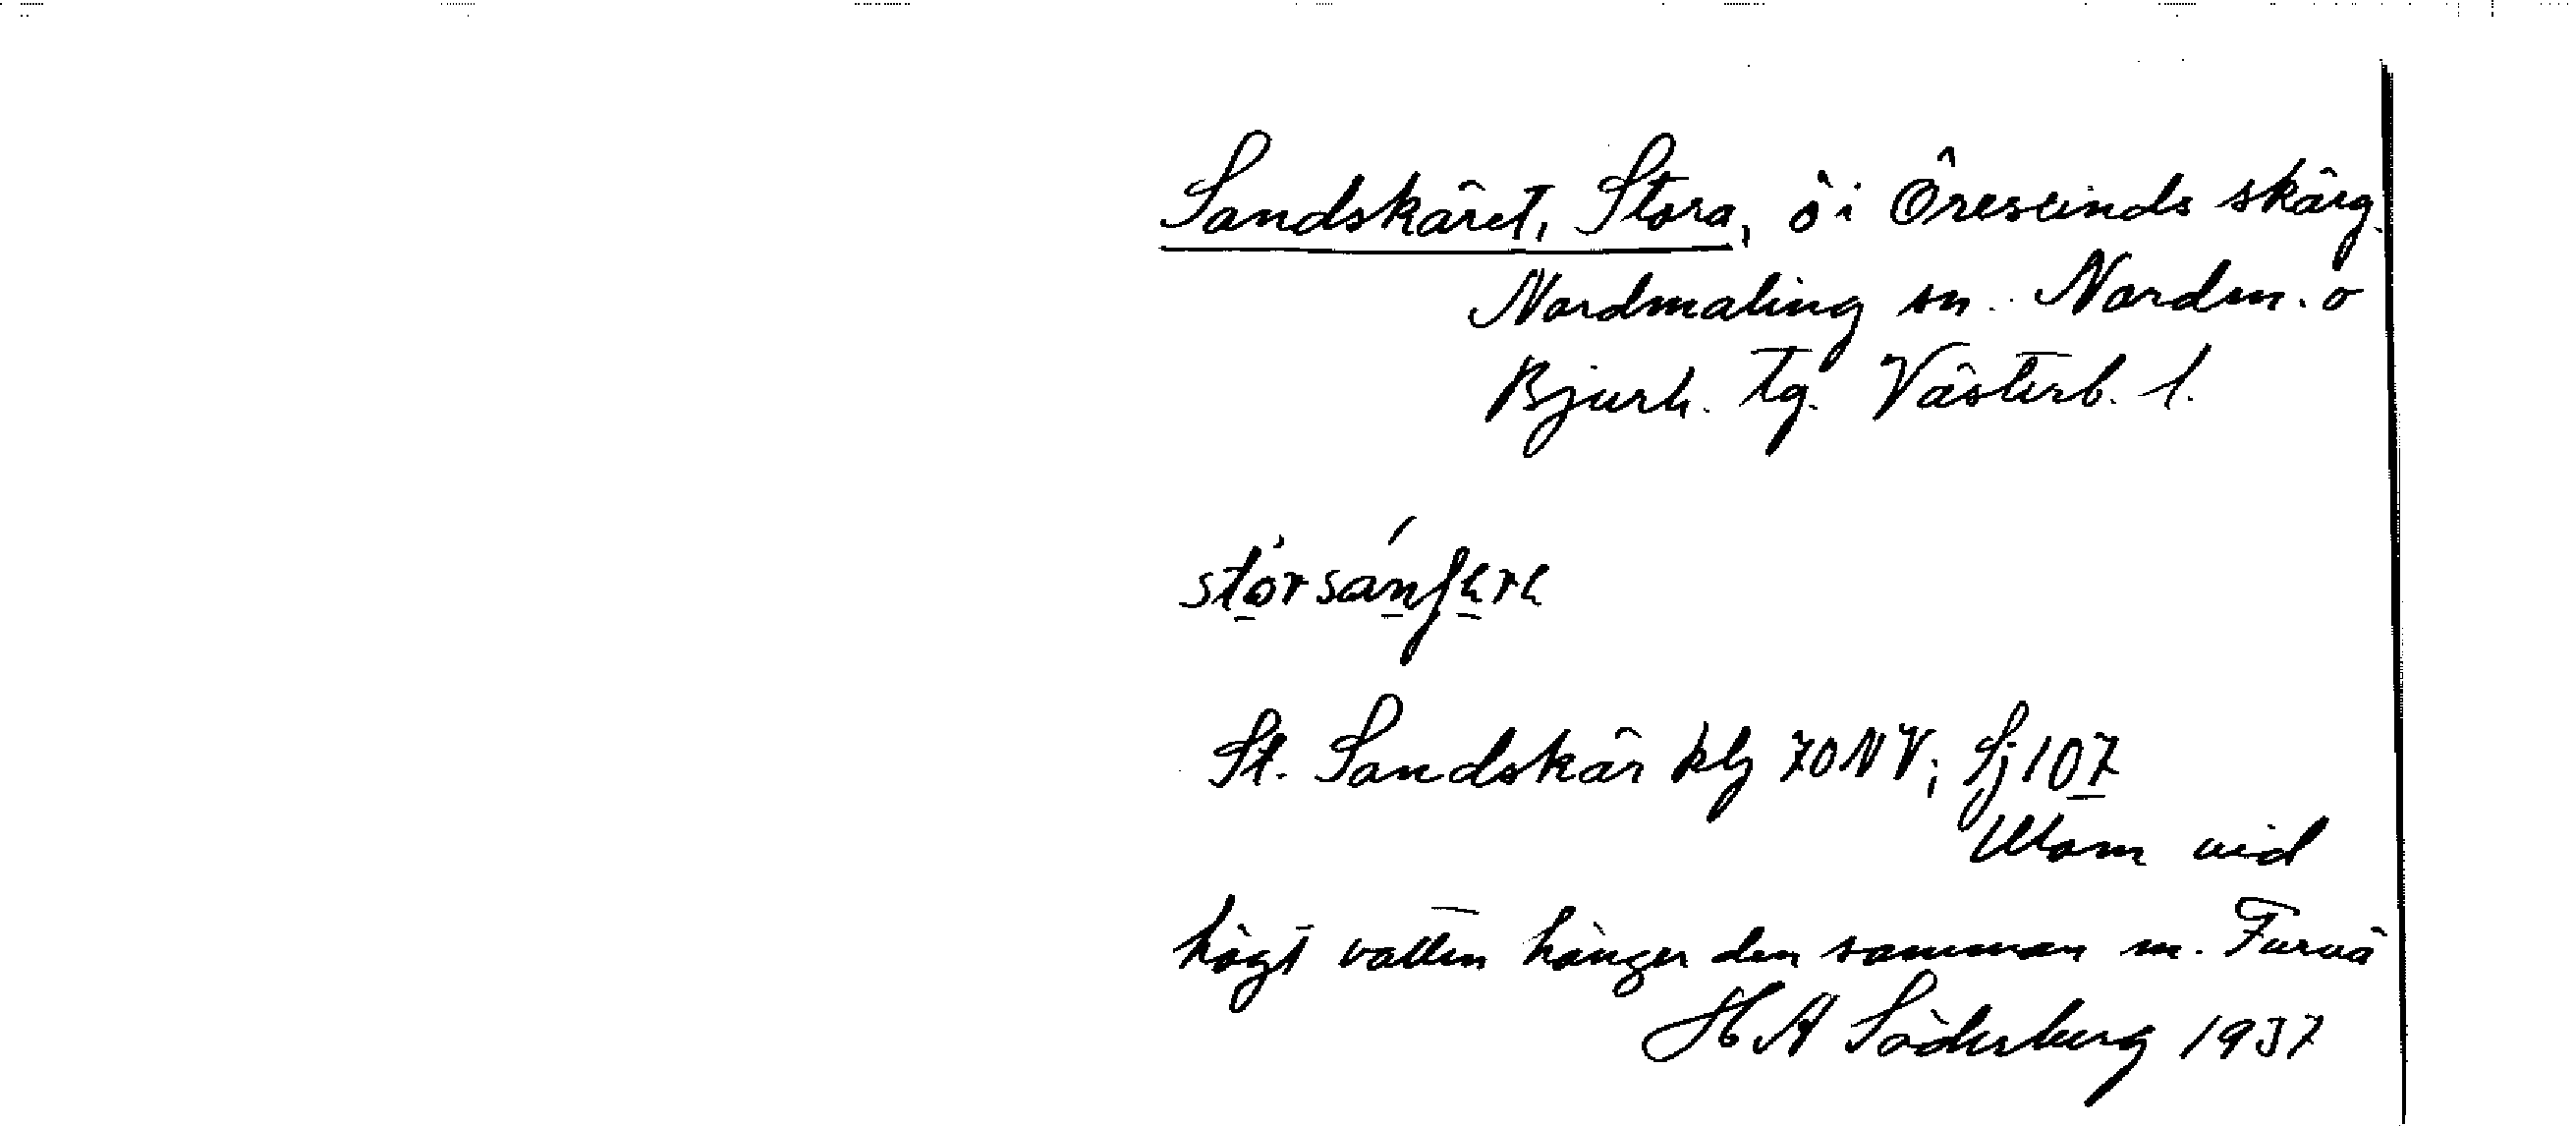 Sandskäret, Stora, ö i Öresunds skärg.
Nordmaling sn. Nordm. o
Bjurh. tg. Västerb. l.
St. Sandskär blg 70NV; Sj 107
Utom vid
högt vatten hänger den samman m. Furuå
H A Söderberg 1937